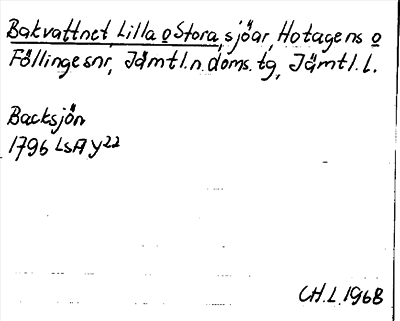 Bakvattnet Lilla o Stora, sjöar, Hotagens o
Föllinge snr, Jämtl.n.doms.tg, Jämtl.l.
Backsjön
1796 LSA Y22
CH.L.1968